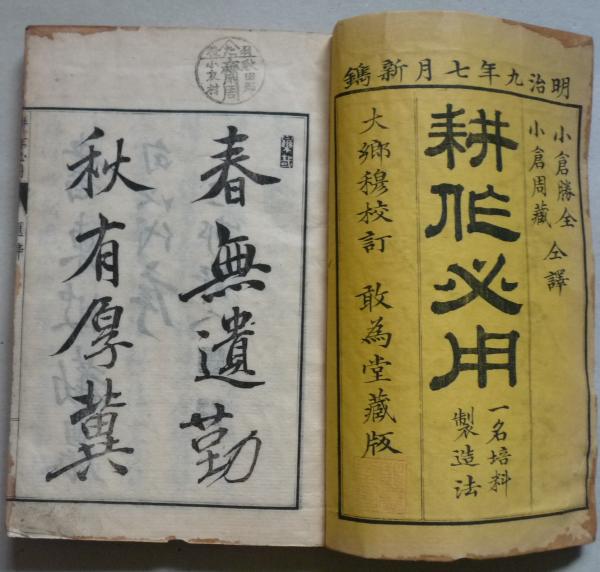 明治九年七月新鐫
小倉勝全
小倉周藏
仝譯
耕作必用
一名培料
製造法
大鄉穆校訂 敢為堂藏版
春無遺勤
秋有厚冀